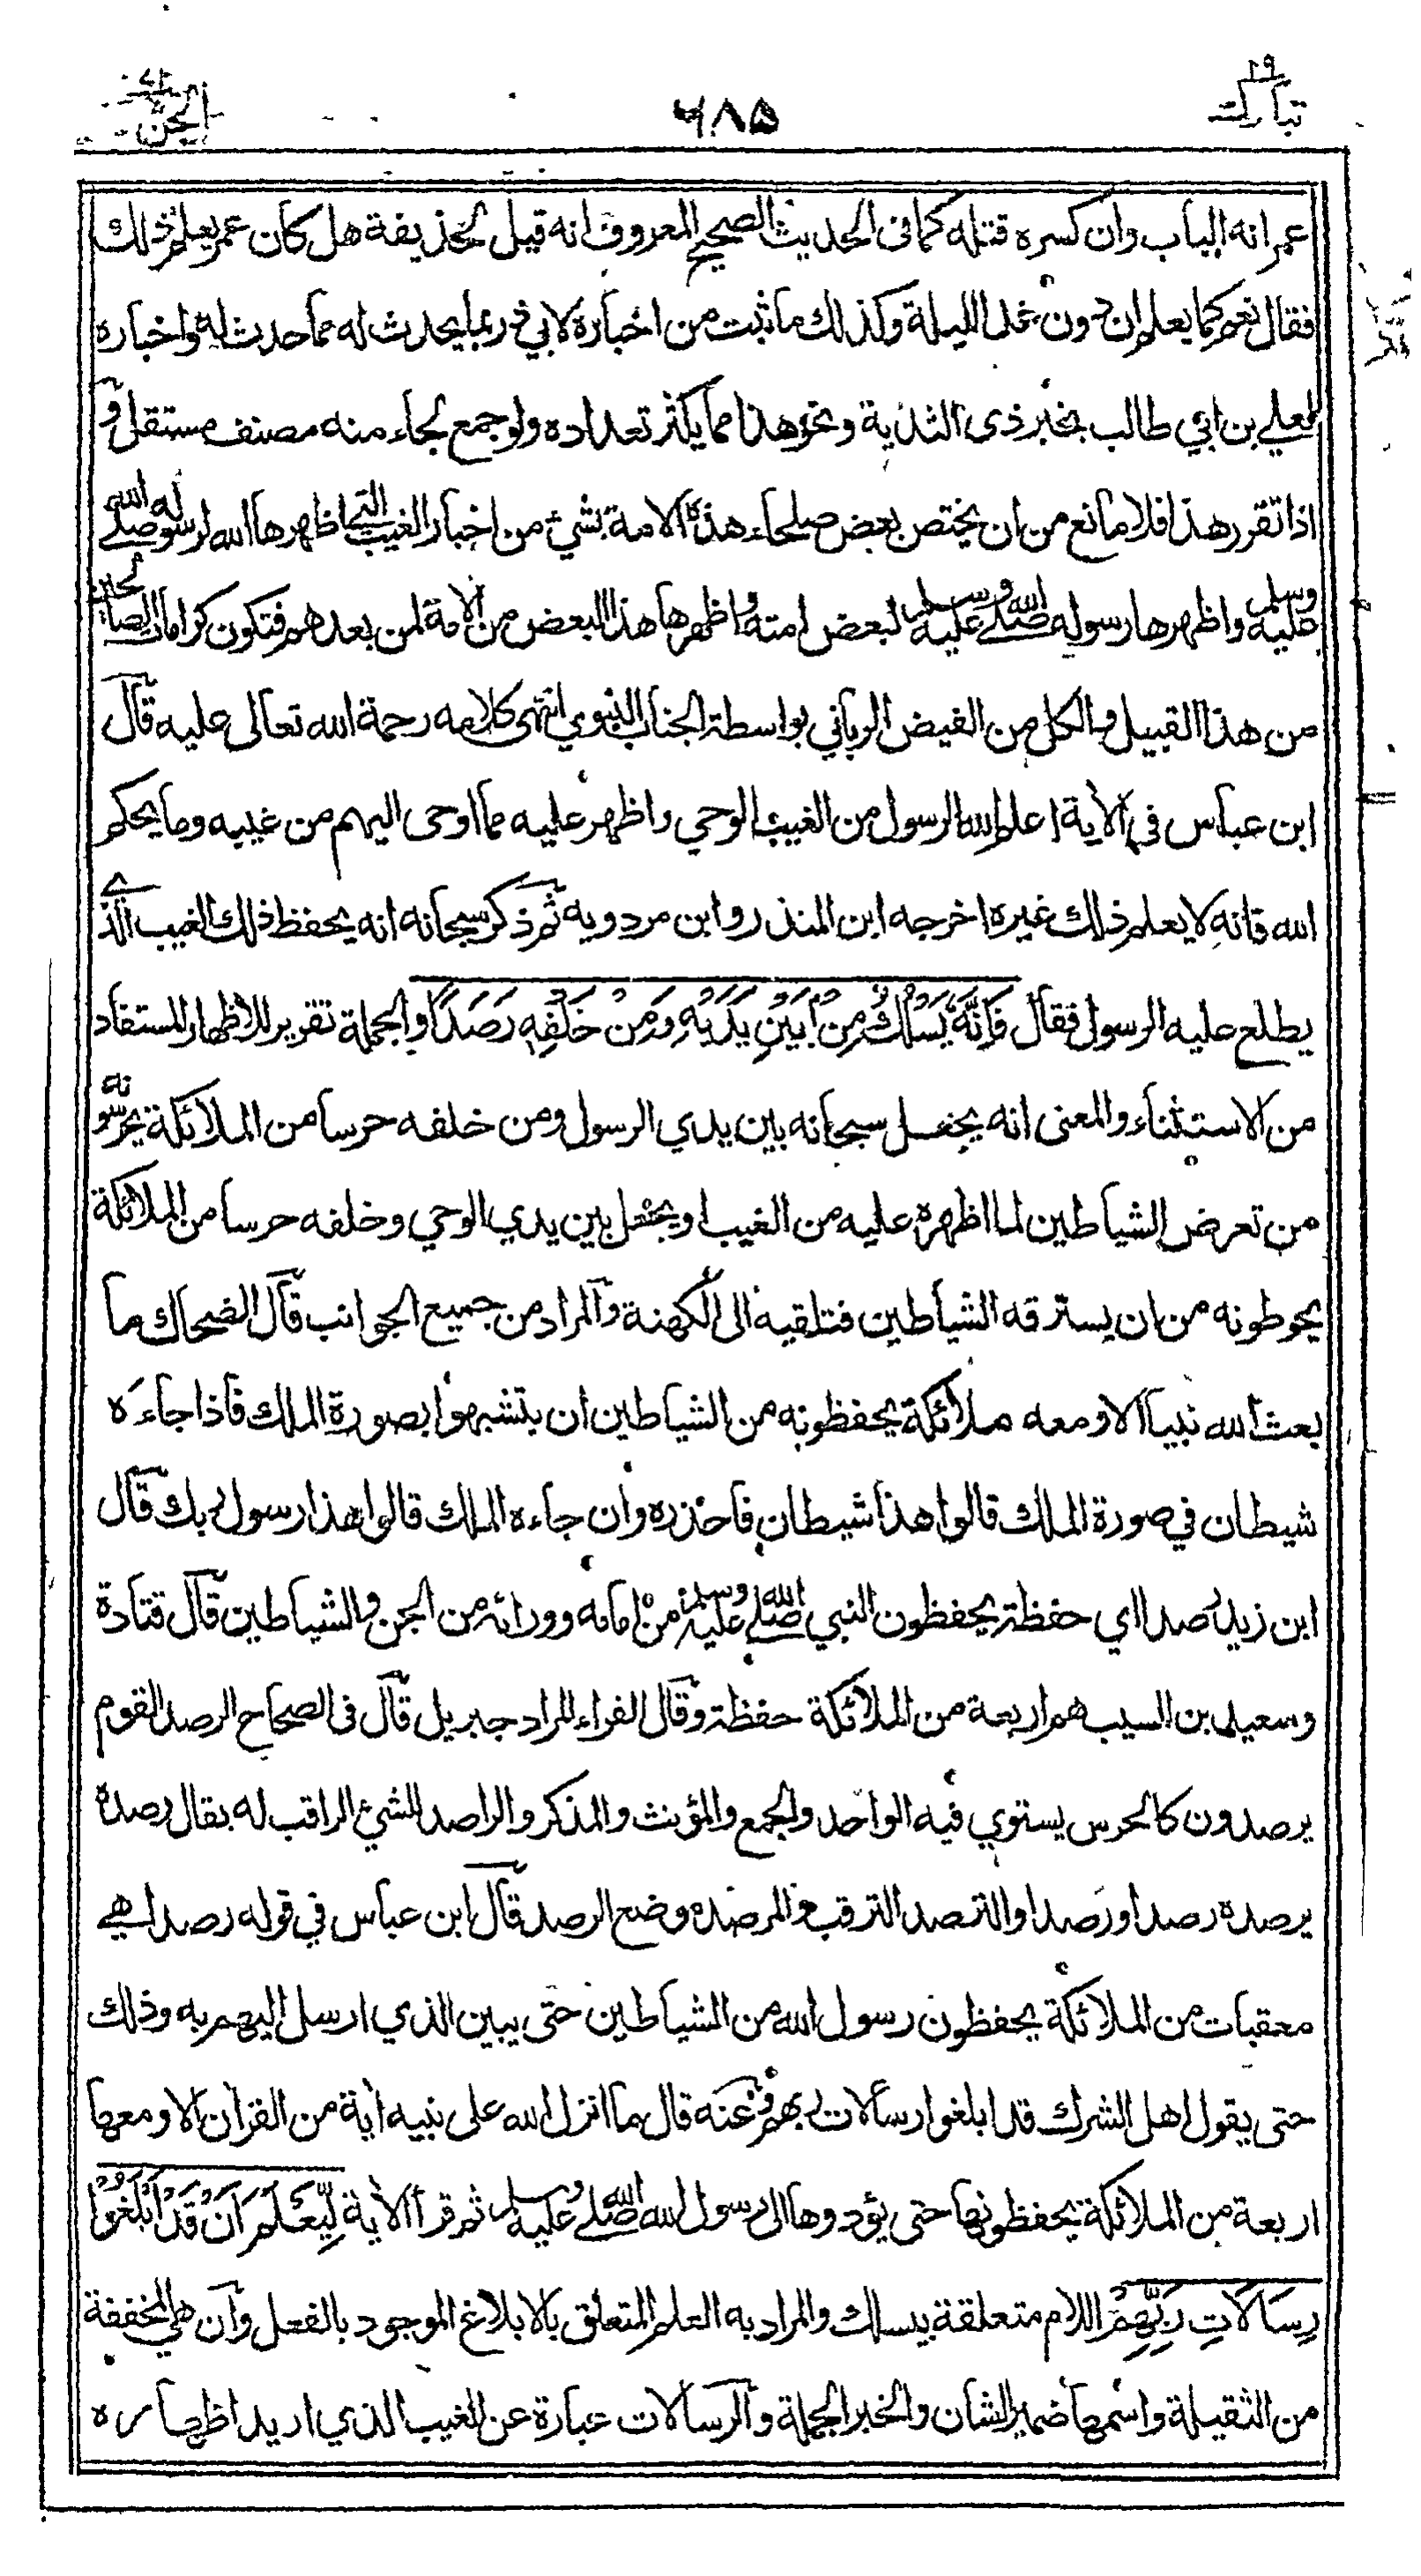 تبارك ٢٩
٦٨٥
الجن ٧٢
عمر انه الباب وان كسره قتله كما في الحديث الصحيح المعروف انه قيل لحذيفة هل كان عمر يعلم ذلك
فقال نعم كما يعلم ان دون غد الليلة وكذلك ما ثبت من اخباره لابي ذر بما يحدث له مما حدث له واخباره
لعلي بن ابي طالب بخبر ذي الثدية ونحو هذا مما يكثر تعداده ولو جمع لجاء منه مصنف مستقل و
اذا تقرر هذا فلا مانع من ان يختص بعض صلحاء هذه الامة بشئ من اخبار الغيب التي اظهرها الله لرسوله صلى الله
عليه وسلم واظهرها رسوله صلى الله عليه وسلم لبعض امته واظهرها هذا البعض من الامة لمن بعدهم فتكون كرامات الصالحين
من هذا القبيل والكل من الفيض الرباني بواسطة الجناب النبوي انتهى كلامه رحمة الله تعالى عليه قال
ابن عباس في الأية اعلم الله الرسول من الغيب الوحي واظهر عليه مما اوحى اليهم من غيبه وما يحكم
الله فانه لا يعلم ذلك غيره اخرجه ابن المنذر وابن مردويه ثم ذكر سبحانه انه يحفظ ذلك الغيب الذي
يطلع عليه الرسول فقال فَإِنَّهُ يَسْلُكُ مِنْ بَيْنِ يَدَيْهِ وَمِنْ خَلْفِهِ رَصَدًا والجملة تقرير للاظهار المستفاد
من الاستثناء والمعنى انه يجعل سبحانه بين يدي الرسول ومن خلفه حرسا من الملائكة يحرسونه
من تعرض الشياطين لما اظهره عليه من الغيب او يجعل بين يدي الوحي وخلفه حرسا من الملائكة
يحوطونه من ان يسترقه الشياطين فتلقيه الى الكهنة والمراد من جميع الجوانب قال الضحاك ما
بعث الله نبيا الا ومعه ملائكة يحفظونه من الشياطين ان يتشبهوا بصورة الملك فاذا جاءه
شيطان في صورة الملك قالوا هذا شيطان فاحذره وان جاءه الملك قالوا هذا رسول ربك قال
ابن زيد رصدا اي حفظة يحفظون النبي صلى الله عليه وسلم من امامه وورائه من الجن والشياطين قال قتادة
وسعيد بن المسيب هم اربعة من الملائكة حفظة وقال الفراء المراد جبريل قال في الصحاح الرصد القوم
يرصدون كالحرس يستوي فيه الواحد والجمع والمؤنث والمذكر والراصد للشئ الراقب له يقال رصده
يرصده رصدا ورصدا والترصد الترقب والمرصد موضع الرصد قال ابن عباس في قوله رصدا هي
معقبات من الملائكة يحفظون رسول الله من الشياطين حتى يبين الذي ارسل اليهم به وذلك
حتى يقول اهل الشرك قد ابلغوا رسالات ربهم وعنه قال ما انزل الله على نبيه أية من القرأن الا ومعها
اربعة من الملائكة يحفظونها حتى يؤدوها الى رسول الله صلى الله عليه وسلم ثم قرأ الأية لِيَعْلَمَ اَنْ قَدْ اَبْلَغُوْا
رِسَالَاتِ رَبِّهِمْ اللام متعلقة بيسلك والمراد به العلم المتعلق بالابلاغ الموجود بالفعل وان هي المخففة
من الثقيلة واسمها ضمير الشان والخبر الجملة والرسالات عبارة عن الغيب الذي اريد اظهاره